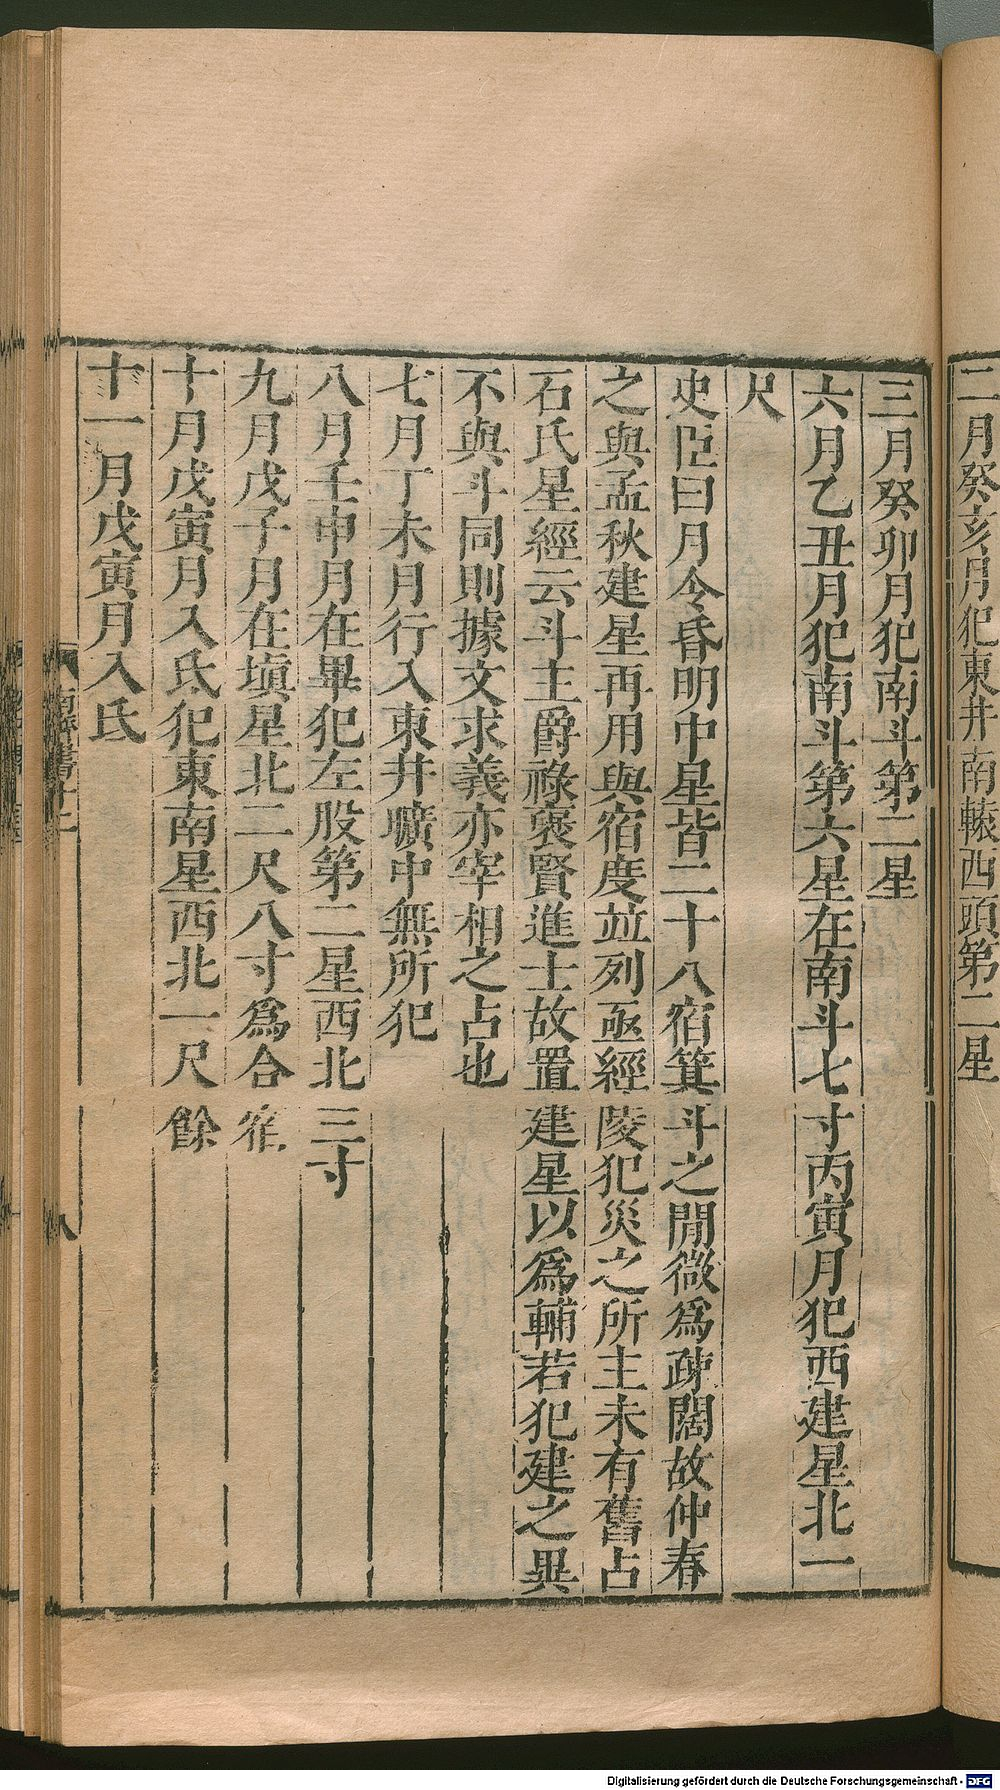 二月癸亥月犯東井南轅西頭第二星
三月癸卯月犯南斗第二星
六月乙丑月犯南斗第六星在南斗七寸丙寅月犯西建星北一
尺
史臣曰月令昏明中星皆二十八宿箕斗之閒微爲疎闊故仲春
之與孟秋建星再用與宿度並列亟經陵犯災之所主未有舊占
石氏星經云斗主爵祿褒賢進士故置建星以爲輔若犯建之異
不與斗同則據文求義亦宰相之占也
七月丁未月行入東井曠中無所犯
八月壬申月在畢犯左股第二星西北三寸
九月戊子月在塡星北二尺八寸爲合宿
十月戊寅月入氐犯東南星西北一尺餘
十一月戊寅月入氐
南齊書十二
八
Digitalisierung gefördert durch die Deutsche Forschungsgemeinschaft - DFG